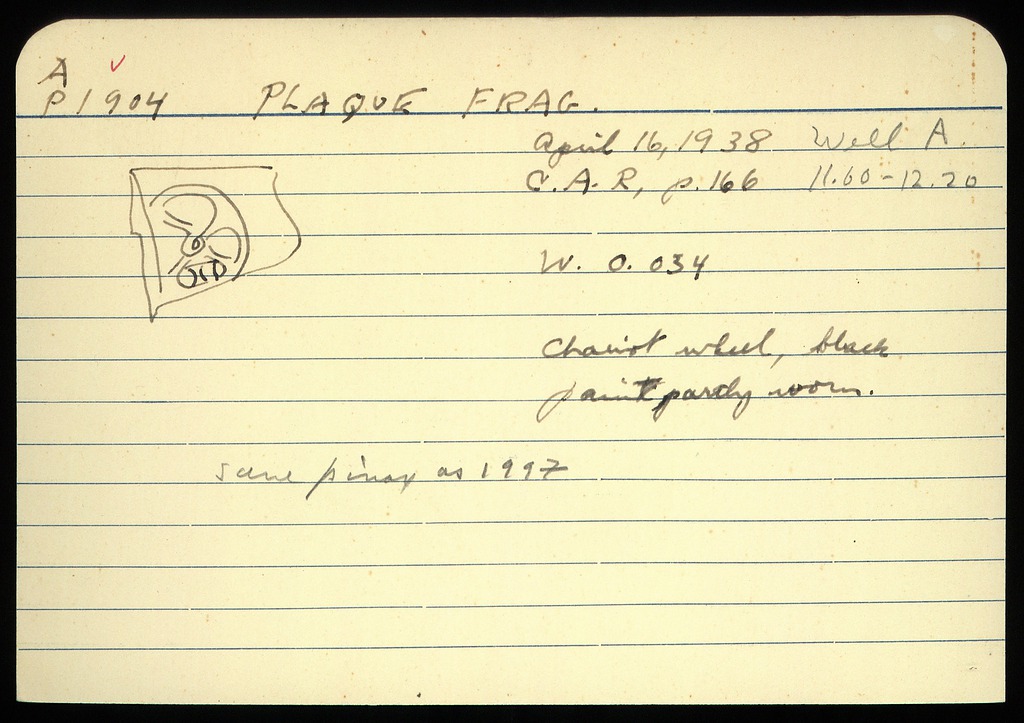 A
P 1904 PLAQUE FRAG.
April 16, 1938 Well A.
C.A.R, p. 166 11.60-12.20
W. 0.034
Chariot wheel, black
paint partly worn.
same pinax as 1997